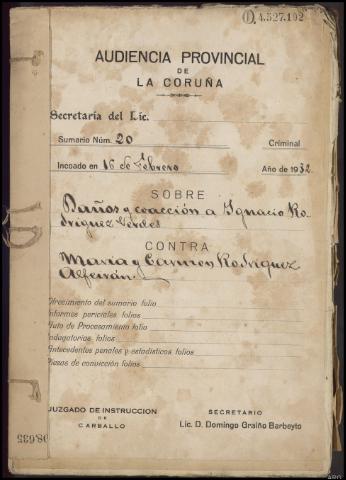 (1) 4.527.192
AUDIENCIA PROVINCIAL
DE
LA CORUÑA
Secretaría del Lic.
Sumario Núm. 20
Criminal
Incoado en 16 de Febrero
Año de 1932
SOBRE
Daños y coacción a Ignacio Ro-
dríguez Verdes
CONTRA
María y Carmen Rodríguez
Alfeirán
Ofrecimiento del sumario folio
Informes periciales folios
Auto de Procesamiento folio
Indagatorias folios
Antecedentes penales y estadísticos folios
Piezas de convicción folios
JUZGADO DE INSTRUCCION
DE
CARBALLO
SECRETARIO
Lic. D. Domingo Graiño Barbeyto
ARG